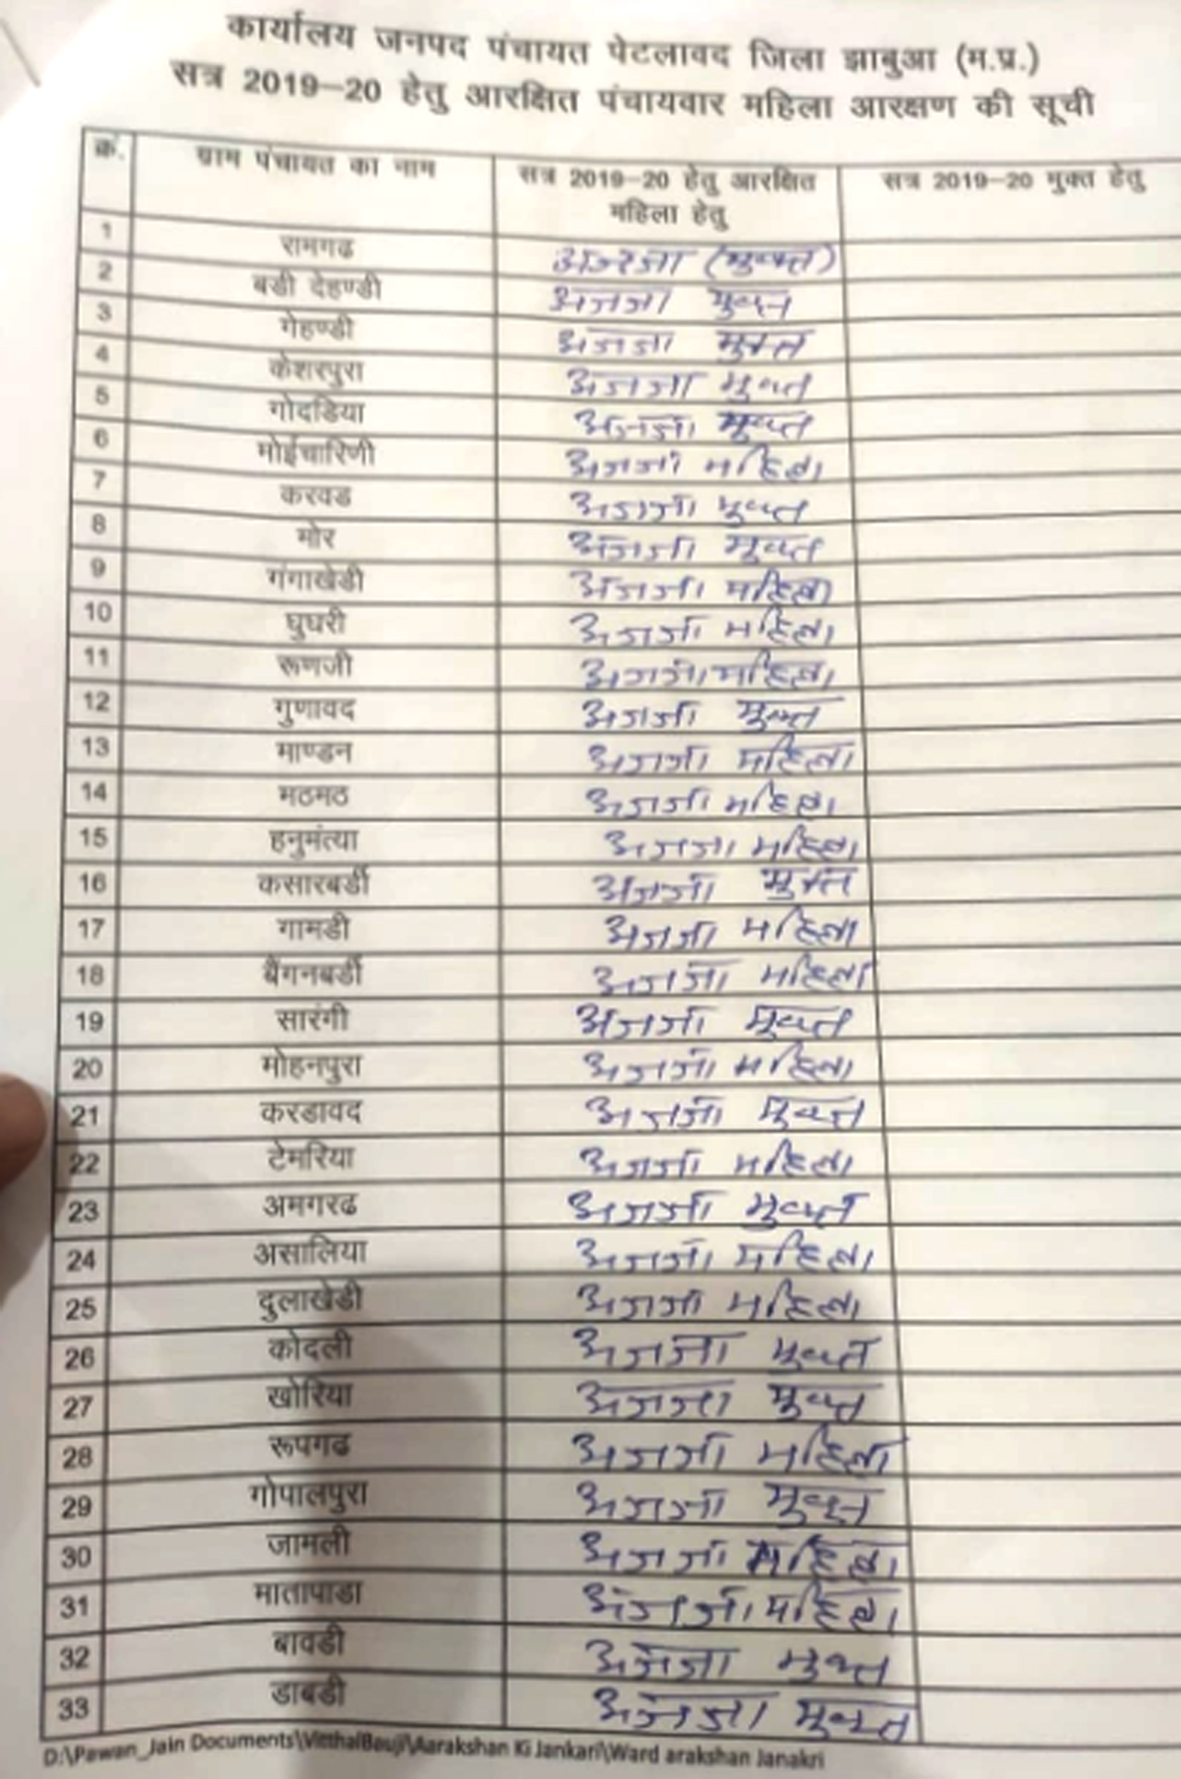 कार्यालय जनपद पंचायत पेटलावद जिला झाबुआ (म.प्र.)
सत्र 2019–20 हेतु आरक्षित पंचायवार महिला आरक्षण की सूची
क्र. ग्राम पंचायत का नाम सत्र 2019–20 हेतु आरक्षित महिला हेतु सत्र 2019–20 मुक्त हेतु
1 रामगढ अजजा (मुक्त)
2 बडी देहण्डी अजजा मुक्त
3 गेहण्डी अजजा मुक्त
4 केशरपुरा अजजा मुक्त
5 गोदडिया अजजा मुक्त
6 मोईचारिणी अजजा महिला
7 करवड अजजा मुक्त
8 मोर अजजा मुक्त
9 गंगाखेडी अजजा महिला
10 घुघरी अजजा महिला
11 रूणजी अजजा महिला
12 गुणावद अजजा मुक्त
13 माण्डन अजजा महिला
14 मठमठ अजजा महिला
15 हनुमंत्या अजजा महिला
16 कसारबर्डी अजजा मुक्त
17 गामडी अजजा महिला
18 बैंगनबर्डी अजजा महिला
19 सारंगी अजजा मुक्त
20 मोहनपुरा अजजा महिला
21 करडावद अजजा मुक्त
22 टेमरिया अजजा महिला
23 अमगरढ अजजा मुक्त
24 असालिया अजजा महिला
25 दुलाखेडी अजजा महिला
26 कोदली अजजा मुक्त
27 खोरिया अजजा मुक्त
28 रूपगढ अजजा महिला
29 गोपालपुरा अजजा मुक्त
30 जामली अजजा महिला
31 मातापाडा अजजा महिला
32 बावडी अजजा मुक्त
33 डाबडी अजजा मुक्त
D:\Pawan_Jain Documents\VitthalBauji\Aarakshan Ki Jankari\Ward arakshan Janakri